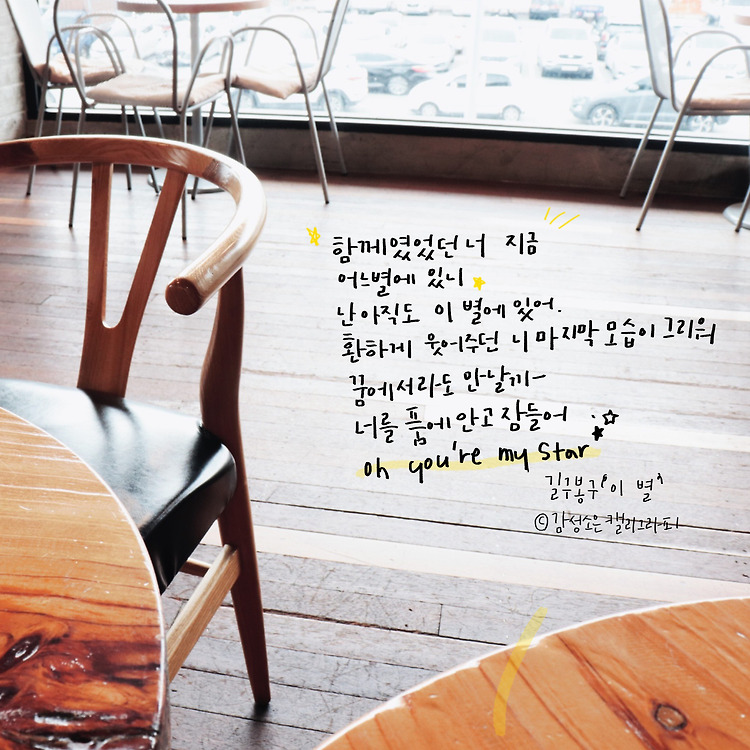 함께였었던 너 지금
어느별에 있니
난 아직도 이 별에 있어.
환하게 웃어주던 니 마지막 모습이 그리워
꿈에서라도 만날까
너를 품에 안고 잠들어
oh you're my star
길구봉구 '이 별'
©감성소은캘리그라피